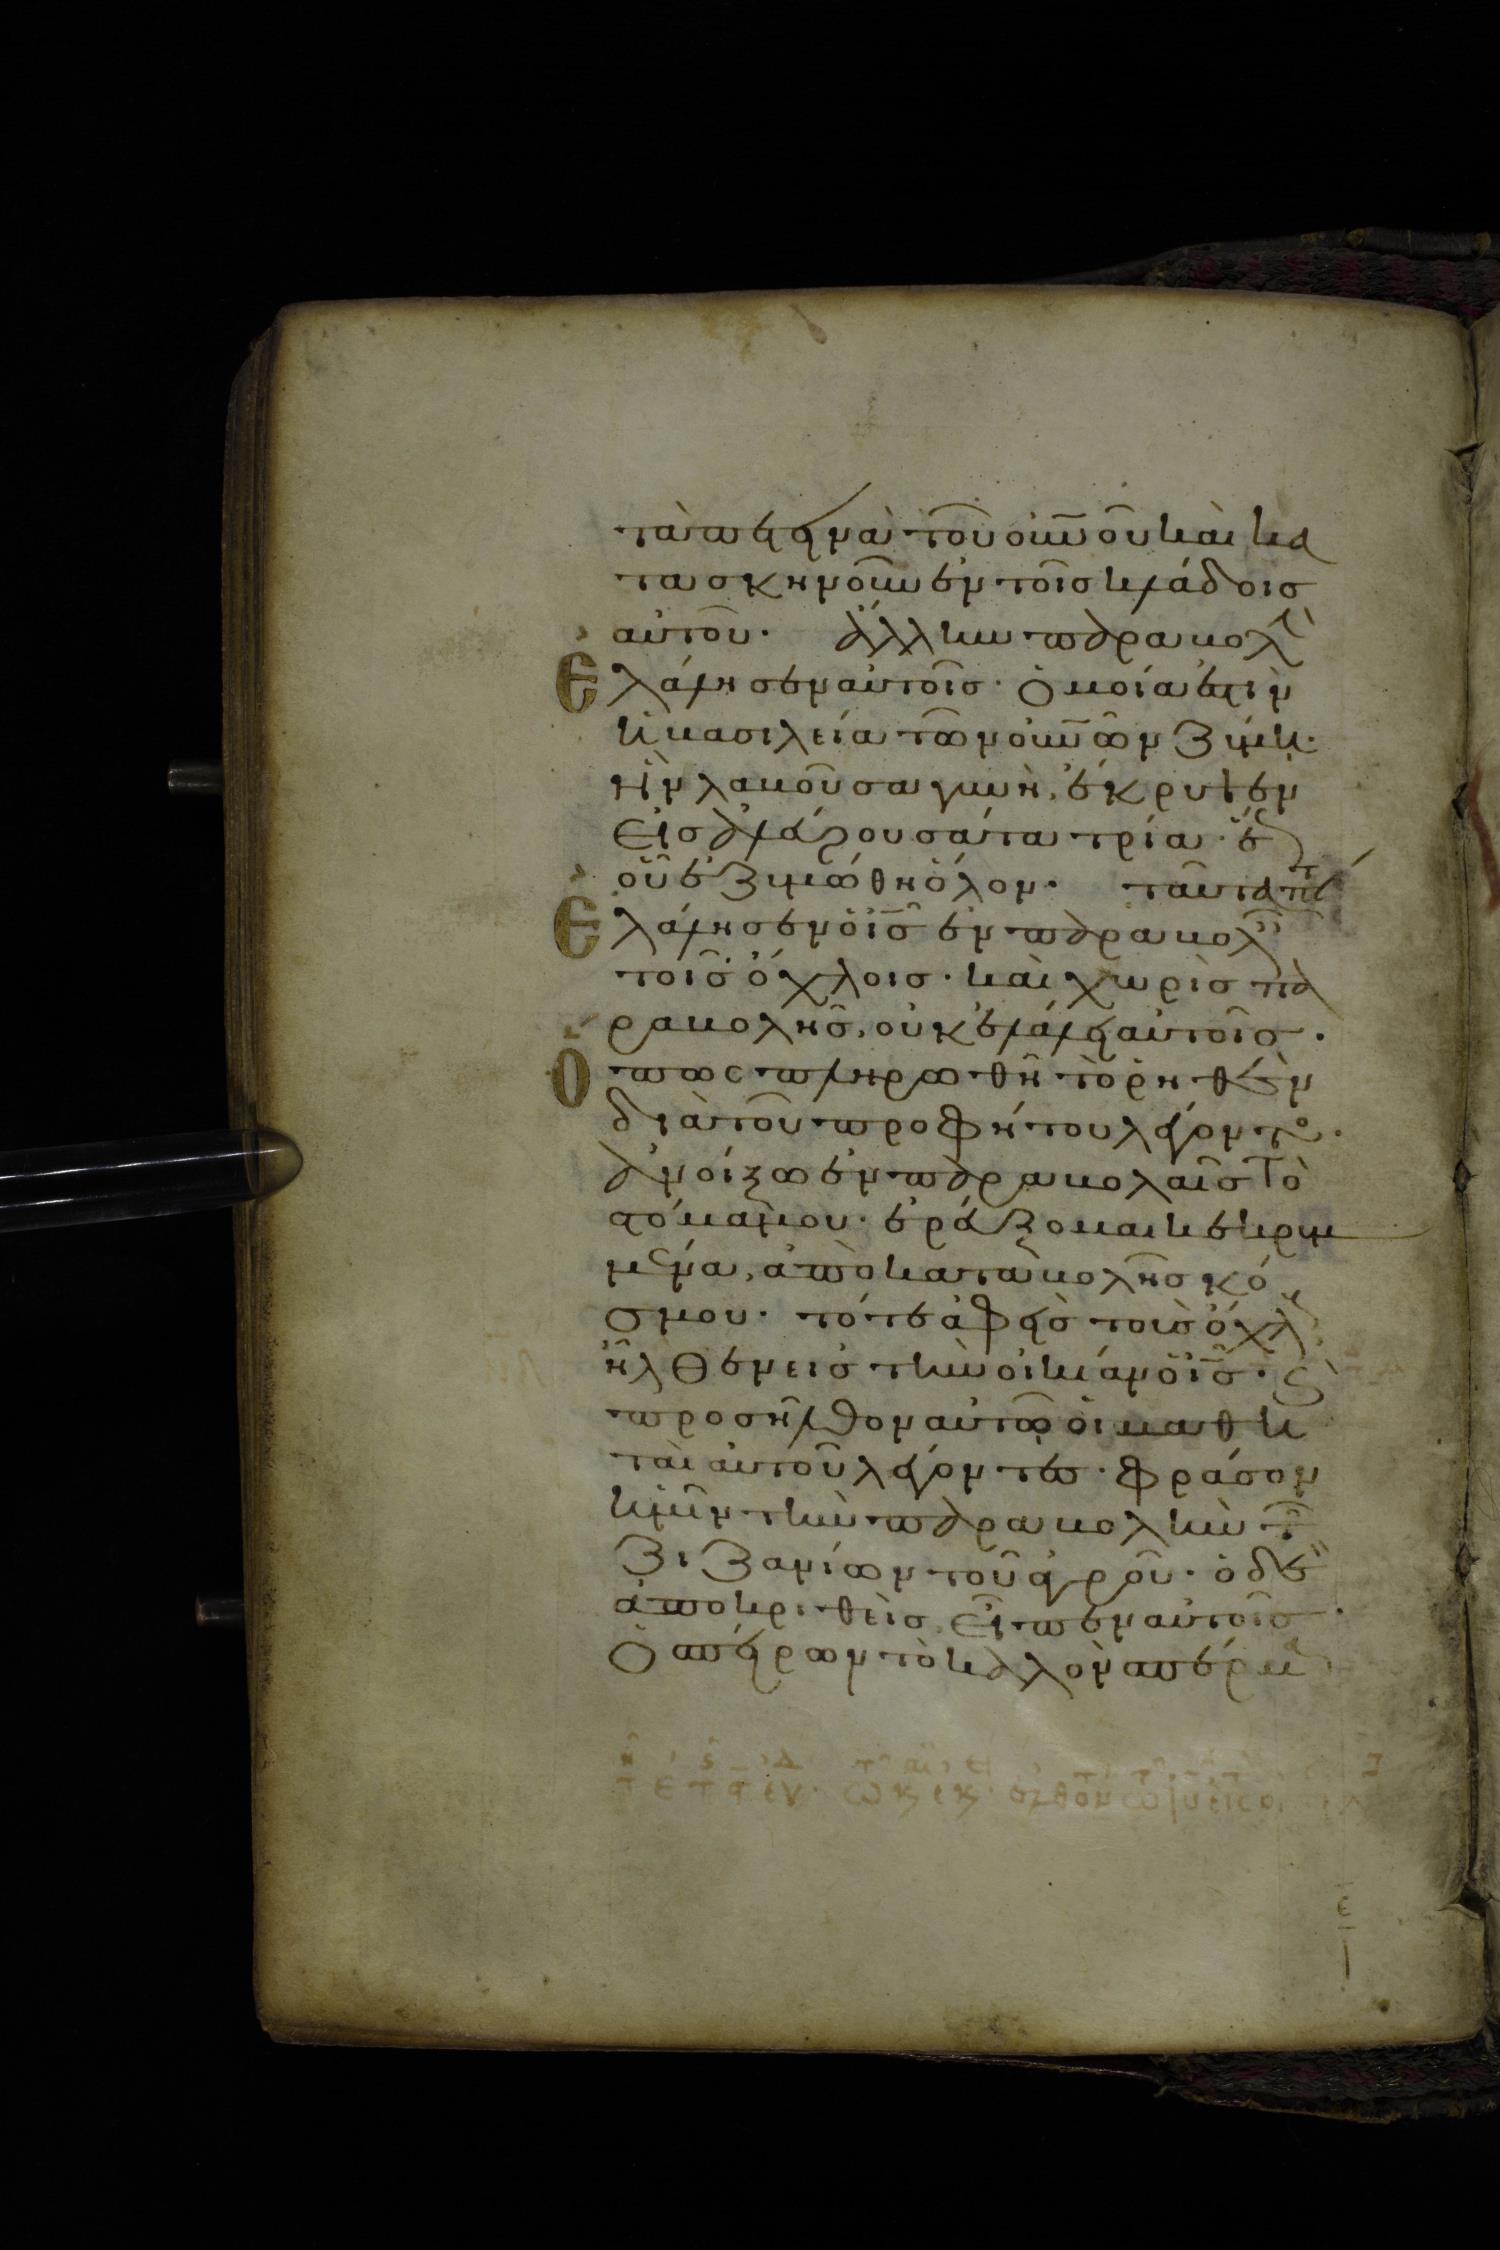 τὰ πετεινὰ τοῦ οὐνοῦ καὶ κα
τασκηνοῦν ἐν τοῖς κλάδοις
αὐτοῦ. ἄλλην παραβολὴ
Ἐλάλησεν αὐτοῖς. Ὁμοία ἐστὶν
ἡ βασιλεία τῶν οὐνῶν ζύμη.
ἣν λαβοῦσα γυνὴ, ἔκρυψεν
εἰς ἀλεύρου σάτα τρία. ἕως
οὗ ἐζυμώθη ὅλον. ταῦτα πτ
Ἐλάλησεν ὁ ις ἐν παραβολ
τοῖς ὄχλοις. καὶ χωρὶς πα
ραβολῆς, οὐκ ἐλάλει αὐτοῖς.
Ὅπως πληρωθῆ τὸ ῥηθὲν
διὰ τοῦ προφήτου λέγοντος.
ἀνοίξω ἐν παραβολαῖς τὸ
στόμα μου. ἐρεύξομαι κεκρυμ
μένα, ἀπὸ καταβολῆς κό
σμου. τότε ἀφεὶς τοὺς ὄχλ
ἦλθεν εἰς τὴν οἰκίαν ὁ ις. καὶ
προσῆλθον αὐτῶ οἱ μαθη
ταὶ αὐτοῦ λέγοντες. φράσον
ἡμῖν τὴν παραβολὴν τῶν
ζιζανίων τοῦ ἀγροῦ. ὁ δὲ
ἀποκριθεὶς, εἶπεν αὐτοῖς.
Ὁ σπείρων τὸ καλὸν σπέρμα